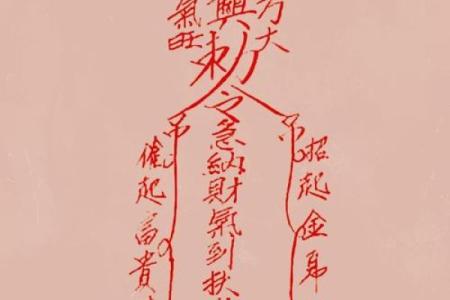 大
興
敕令急納財氣到扶
氣旺
招起金帛
催起富貴